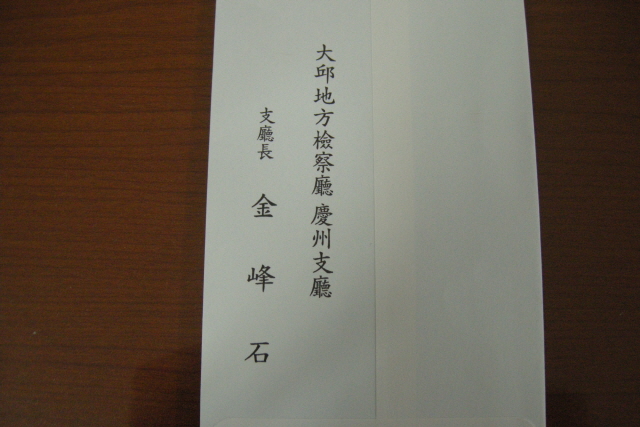 大邱地方檢察廳 慶州支廳
支廳長 金峰石